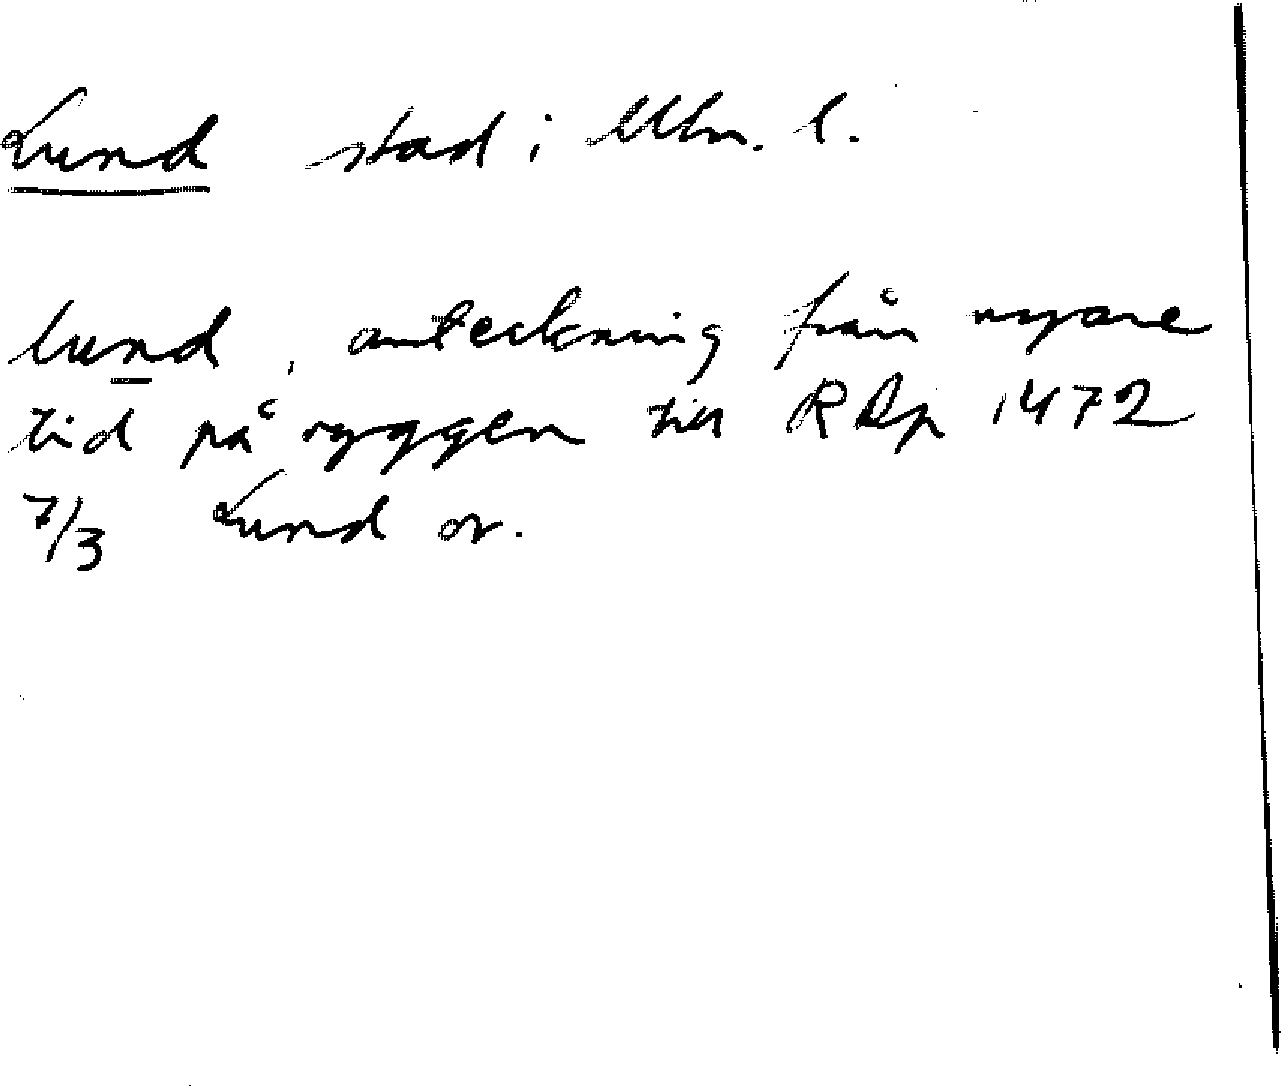 Lund stad i Mlm. l.
lund, anteckning från nyare
tid på ryggen till RAp 1472
7/3 Lund or.